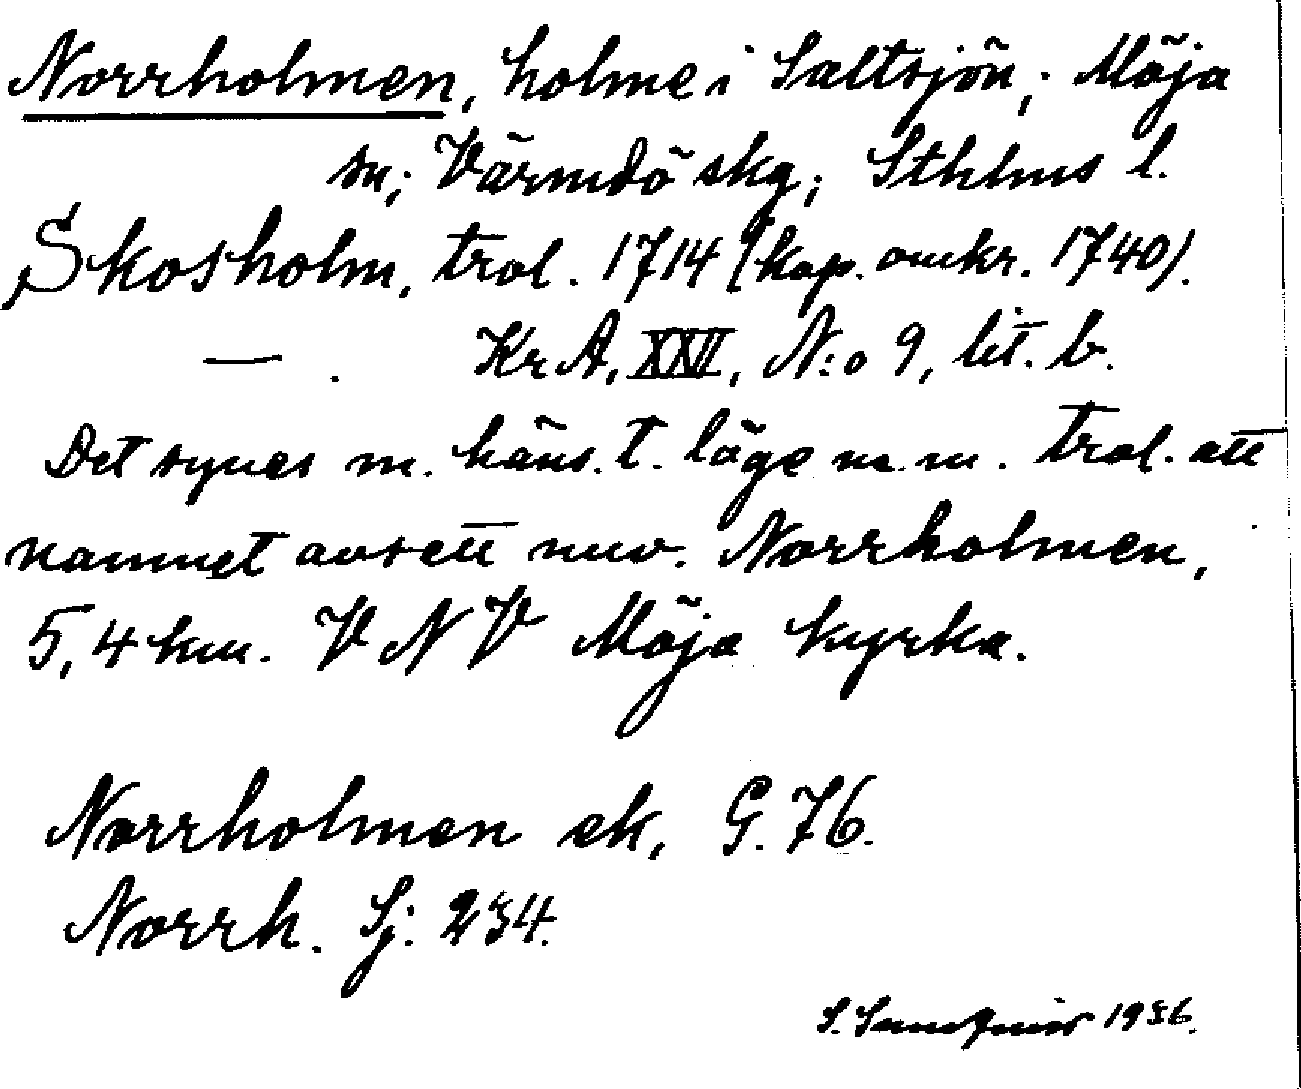 Norrholmen, holme i Saltsjön; Möja
sn; Värmdö skg; Sthlms l.
Skosholm, trol. 1714 (kop. omkr. 1740).
— . KrA, XXII, N:o 9, lit. b.
Det synes m. häns. t. läge m.m. trol. att
namnet avsett nuv. Norrholmen,
5,4 km. V N V Möja kyrka.
Norrholmen ek, G. 76.
Norrh. Sj: 234.
S. 1936.